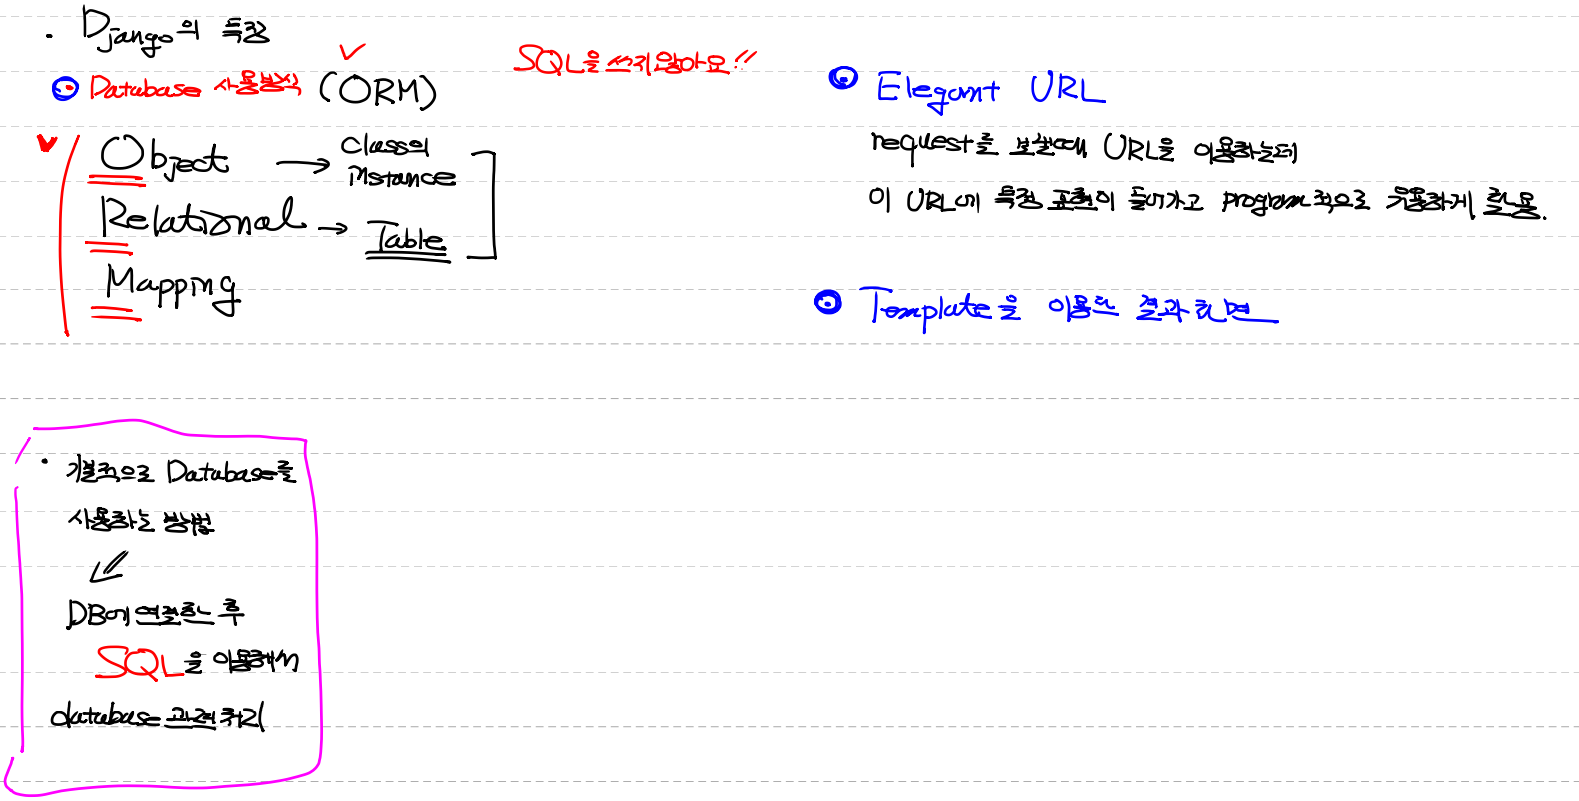 · Django의 특징
Database 사용방식 (ORM)
SQL을 쓰지않아요!!
Object → Class의 instance
Relational → Table
Mapping
· 기본적으로 Database를
사용하는 방법
DB에 연결한 후
SQL을 이용해서
database 관련 처리
Elegant URL
request를 보낼때 URL을 이용하는데
이 URL에 특정 표현이 들어가고 program적으로 유용하게 활용.
Template을 이용한 결과화면